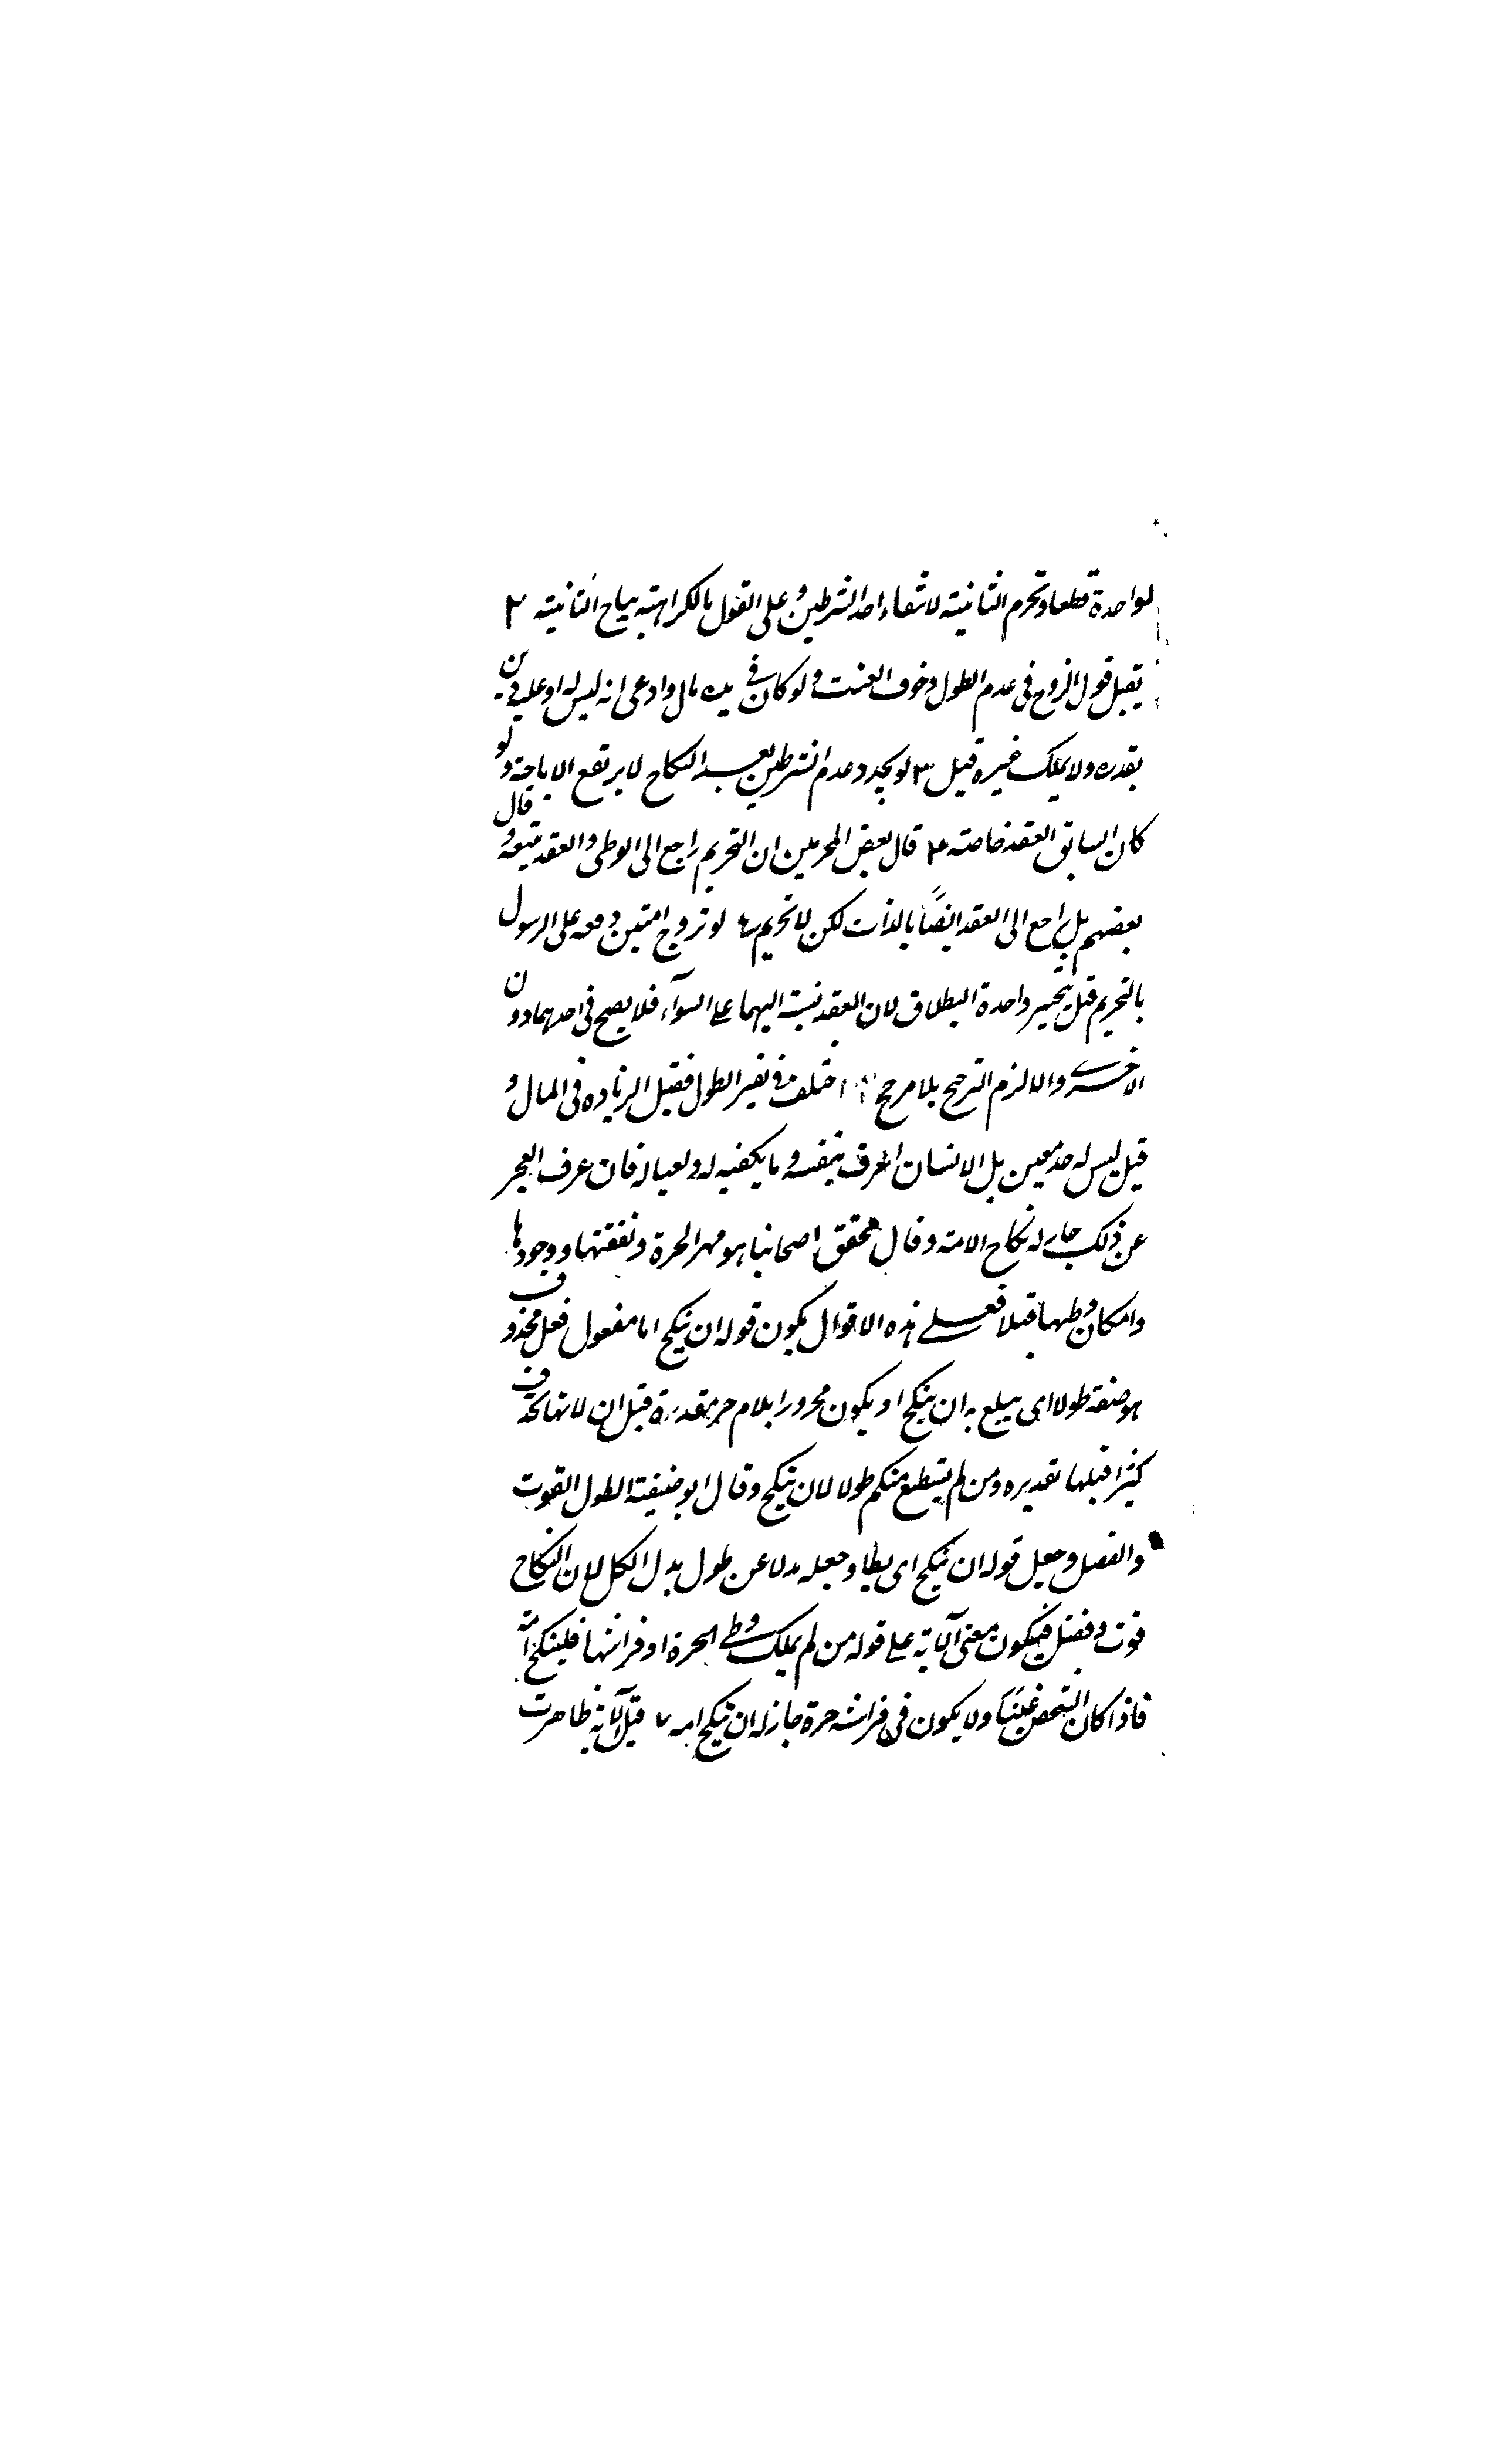 لواحدة قطعا وتحرم الثانية لانتفاء احد الشرطين وعلى القول بالكراهية يباح الثانية ٢
يقبل قول الزوج فى عدم الطول وخوف العنت ولو كان فى يده مال وادعى انه ليس له او عليه دين
بقدره ولا يملك غيره قبل ٣ لو تجدد عدم الشرطين بعد النكاح لا يرتفع الاباحة ولو
كان السابق العقد خاصة ٤ قال بعض المحرمين ان التحريم راجع الى الوطى والعقد تبعه وقال
بعضهم بل راجع الى العقد ايضًا بالذات لكن لا تحريم لو تزوج امتين دفعة على الرسول
بالتحريم قيل يتخير واحدة البطلان لان العقد نسبته اليهما على السوآء فلا يصح فى احدهما دون
الاخرى والا لزم الترجيح بلا مرجح اختلف فى تفسير الطول فقيل الزياده فى المال و
قيل ليس له حد معين بل الانسان اعرف بنفسه وما يكفيه له ولعياله فان عرف العجز
عن ذلك جاز له نكاح الامة وقال محقق اصحابنا هو مهر الحرة ونفقتها ووجودها
وامكان وطيها قبلا فعلى هذه الاقوال يكون قوله ان ينكح اما مفعول فعل محذوف
هو صفة طولا اى يبلغ به ان ينكح او يكون مجرورا بلام جر مقدرة قبل ان لانها تحذف
كثيرا قبلها تقديره ومن لم يستطع منكم طولا لان ينكح وقال ابو حنيفة الطول القوت
والفضل وجعل قوله ان ينكح اى يطا وجعله بدلا عن طول بدل الكل لان النكاح
قوت وفضل فيكون معنى الآية على قوله من لم يملك وطى الحرة او فراشها فلينكح امة
فاذا كان الشخص غنيًا ولا يكون فى فراشه حرة جاز له ان ينكح امه ٧ قيل الآية ظاهرت